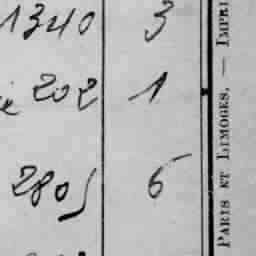 1340 3
202 1
2805 6
PARIS ET LIMOGES. — IMPRI